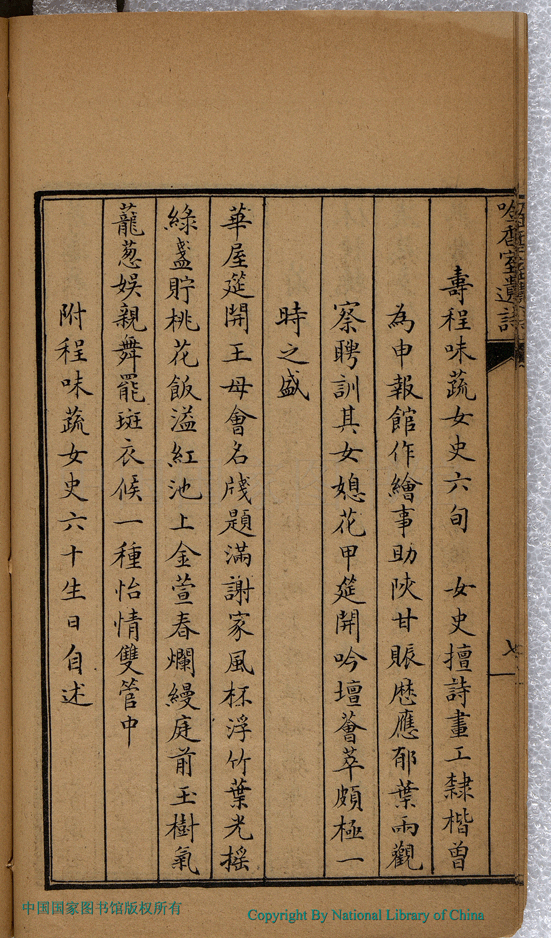 吟香室遺詩
壽程味蔬女史六旬　女史擅詩畫工隸楷曾
為申報館作繪事助陝甘賑歷應郁葉兩觀
察聘訓其女媳花甲筵開吟壇薈萃頗極一
時之盛
華屋筵開王母會名牋題滿謝家風杯浮竹葉光搖
綠盞貯桃花飯溢紅池上金萱春爛縵庭前玉樹氣
蘢蔥娛親舞罷斑衣候一種怡情雙管中
附程味蔬女史六十生日自述
中国国家图书馆版权所有
Copyright By National Library of China